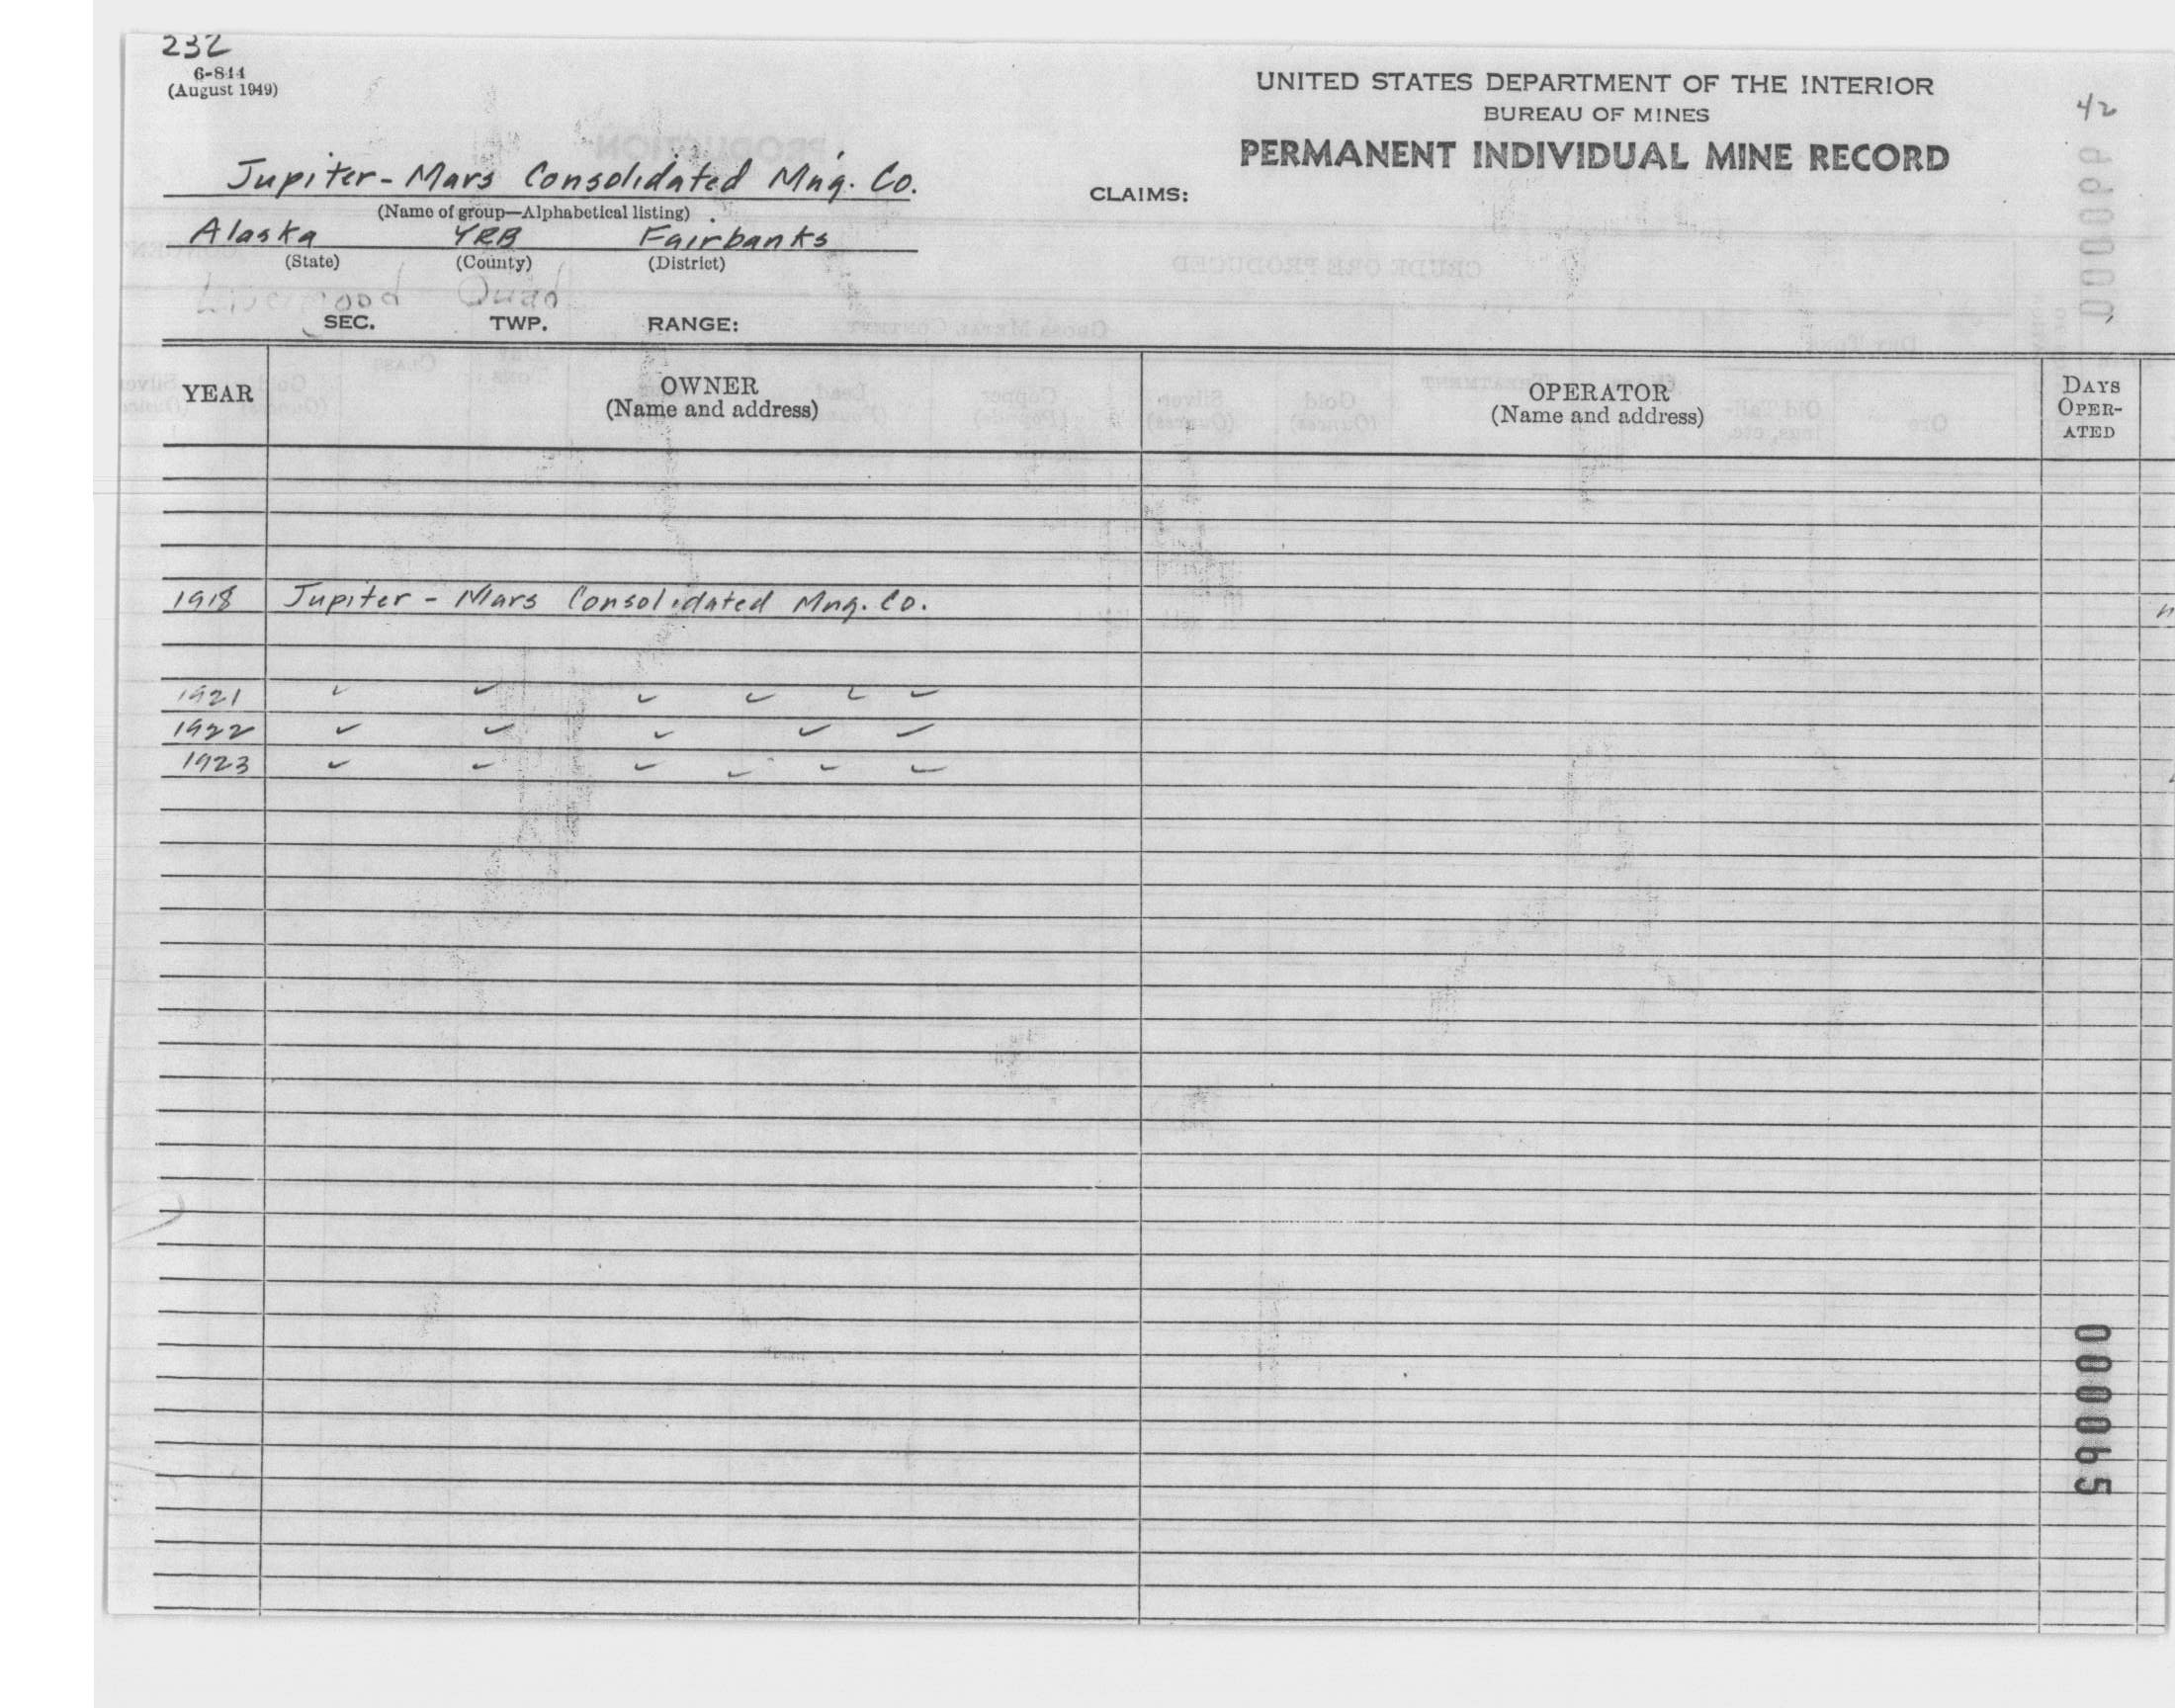 232
6-844
(August 1949)
UNITED STATES DEPARTMENT OF THE INTERIOR
BUREAU OF MINES
PERMANENT INDIVIDUAL MINE RECORD
42
Jupiter-Mars Consolidated Mng. Co.
(Name of group—Alphabetical listing)
CLAIMS:
Alaska YRB Fairbanks
(State) (County) (District)
Livengood Quad
SEC. TWP. RANGE:
YEAR OWNER (Name and address) OPERATOR (Name and address) DAYS OPER-ATED
1918 Jupiter - Mars Consolidated Mng. Co.
1921 ✓ ✓ ✓ ✓ ✓ ✓
1922 ✓ ✓ ✓ ✓ ✓
1923 ✓ ✓ ✓ ✓ ✓ ✓
000065